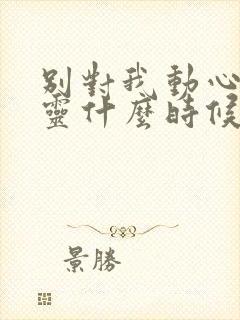 別對我動心
靈什麼時候
景勝